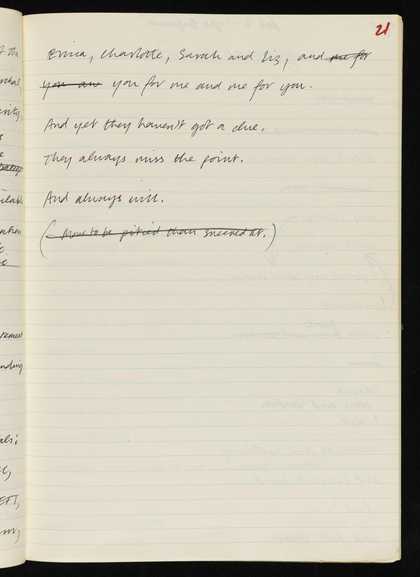 21
Erica, Charlotte, Sarah and Liz, and me for
you are you for me and me for you.
And yet they haven't got a clue.
They always miss the point.
And always will.
(More to be pitied than sneered at.)